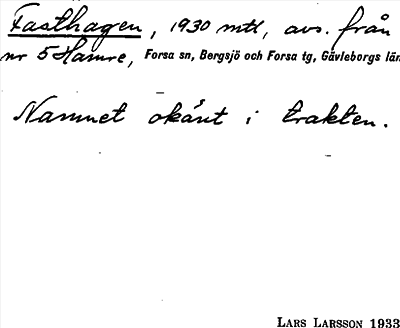 Fasthagen, 1930 mtl, avs. från
nr 5 Hamre, Forsa sn, Bergsjö och Forsa tg, Gävleborgs län
Namnet okänt i trakten.
LARS LARSSON 1933